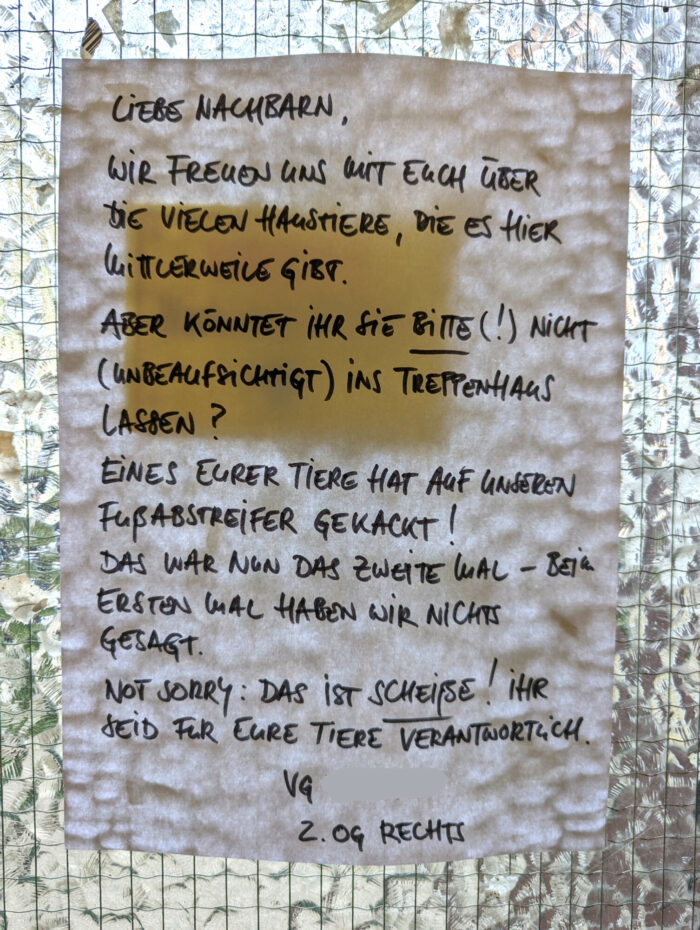 LIEBE NACHBARN,
WIR FREUEN UNS MIT EUCH ÜBER
DIE VIELEN HAUSTIERE, DIE ES HIER
MITTLERWEILE GIBT.
ABER KÖNNTET IHR SIE BITTE (!) NICHT
(UNBEAUFSICHTIGT) INS TREPPENHAUS
LASSEN?
EINES EURER TIERE HAT AUF UNSEREN
FUßABSTREIFER GEKACKT!
DAS WAR NUN DAS ZWEITE MAL – BEIM
ERSTEN MAL HABEN WIR NICHTS
GESAGT.
NOT SORRY: DAS IST SCHEIßE! IHR
SEID FÜR EURE TIERE VERANTWORTLICH.
VG
2. OG RECHTS